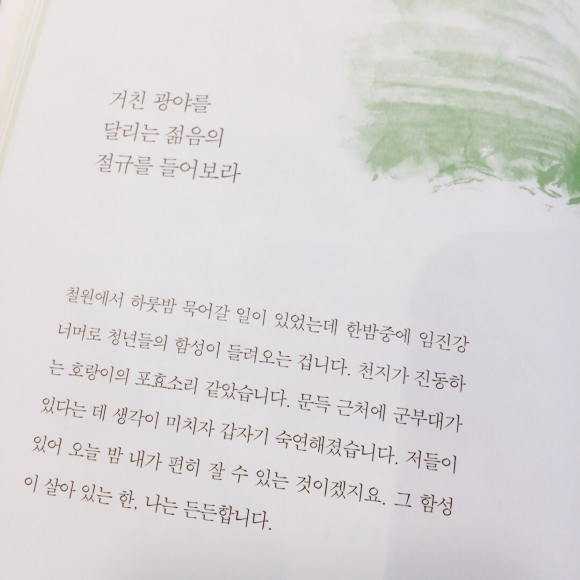 거친 광야를
달리는 젊음의
절규를 들어보라
철원에서 하룻밤 묵어갈 일이 있었는데 한밤중에 임진강
너머로 청년들의 함성이 들려오는 겁니다. 천지가 진동하
는 호랑이의 포효소리 같았습니다. 문득 근처에 군부대가
있다는 데 생각이 미치자 갑자기 숙연해졌습니다. 저들이
있어 오늘 밤 내가 편히 잘 수 있는 것이겠지요. 그 함성
이 살아 있는 한, 나는 든든합니다.